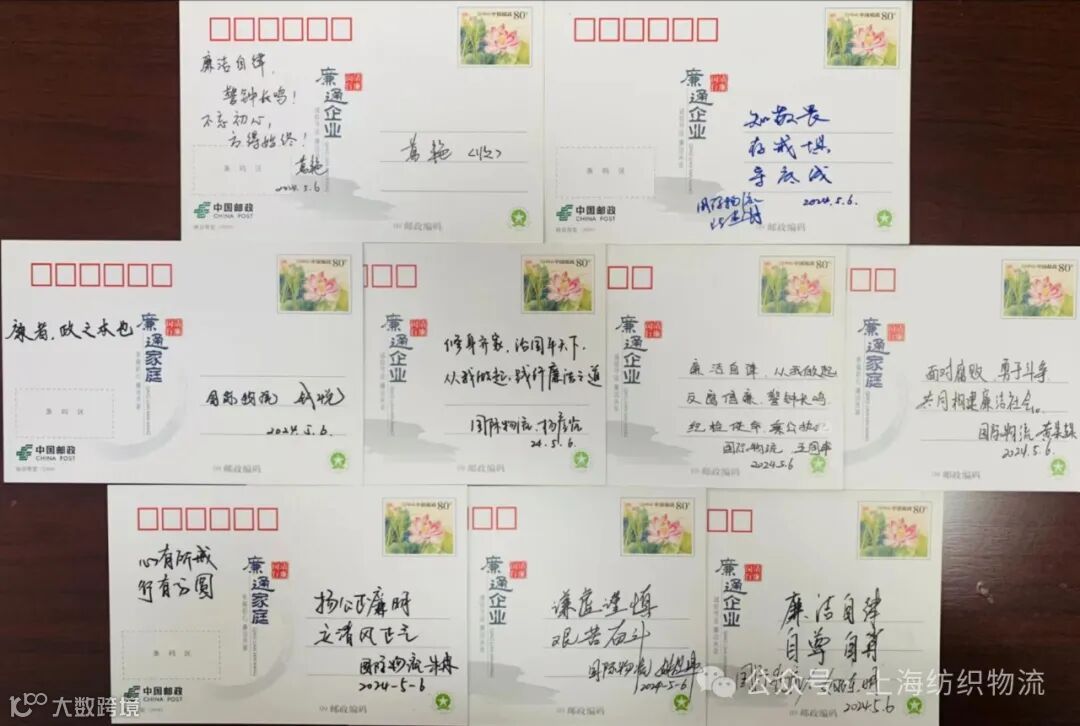 中国邮政 80分
廉通企业
清廉
同行
廉洁自律,
警钟长鸣!
不忘初心,
方得始终!
葛艳
2024.5.6
葛艳(收)
条码区
中国邮政
CHINA POST
邮政编码
80分
廉通企业
知敬畏
存戒惧
守底线
国际物流
2024.5.6.
条码区
中国邮政
CHINA POST
邮政编码
80分
廉通家庭
廉者,政之本也
国际物流 钱悦
2024.5.6.
条码区
中国邮政
CHINA POST
邮政编码
80分
廉通企业
修身齐家、治国平天下.
从我做起、践行廉洁之道
国际物流
24.5.6
80分
廉通企业
廉洁自律、从我做起
反腐倡廉、警钟长鸣
纪检使命、秉公执纪
国际物流 王国平
2024.5.6
邮政编码
80分
廉通家庭
面对腐败,勇于斗争
共同构建廉洁社会
国际物流
2024.5.6.
邮政编码
80分
廉通家庭
心有所戒
行有方圆
扬公正廉明
立清风正气
国际物流 朱森
2024-5-6
条码区
中国邮政
CHINA POST
邮政编码
80分
廉通企业
谦虚谨慎
艰苦奋斗
国际物流
2024-5-6
邮政编码
80分
廉通企业
廉洁自律
自尊自
国际物流
2024.5.6
邮政编码
大数跨境
公众号 · 上海纺织物流